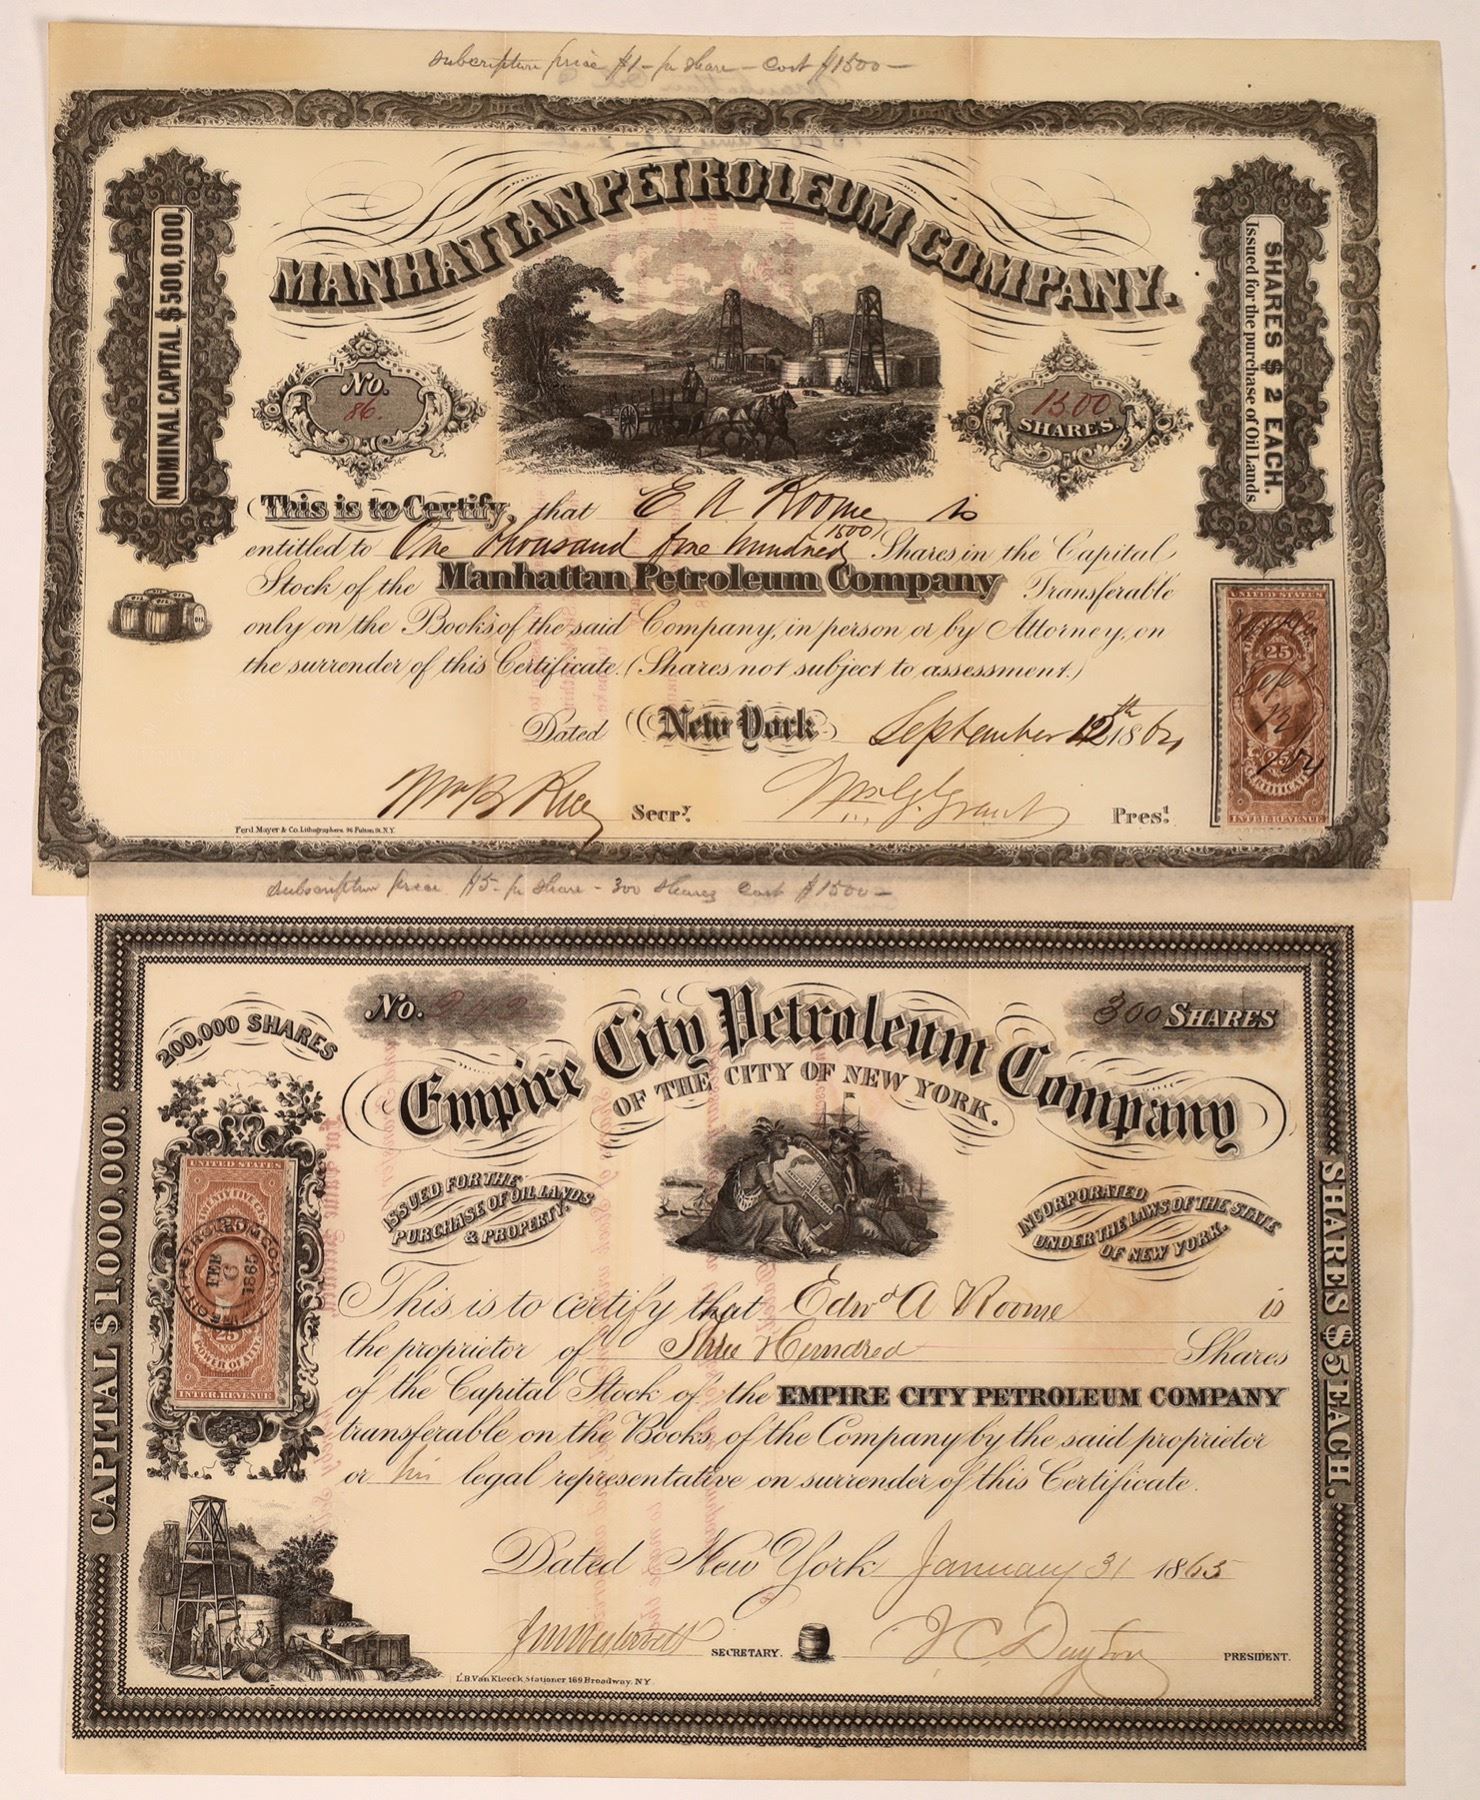 subscription price $1- pr share - Cost $1500-
MANHATTAN PETROLEUM COMPANY.
NOMINAL CAPITAL $500,000.
SHARES $2 EACH.
Issued for the purchase of Oil Lands.
No.
86.
1500
SHARES.
This is to Certify, that E A Roome is
entitled to One thousand five hundred (1500) Shares in the Capital
Stock of the Manhattan Petroleum Company Transferable
only on the Books of the said Company, in person or by Attorney, on
the surrender of this Certificate. (Shares not subject to assessment.)
OIL
Dated New York September 12th 1864
Wm B Rice Secry. Wm. G. Grant Prest.
Ferd. Mayer & Co. Lithographers. 96 Fulton St. N.Y.
UNITED STATES
25
Sept
12/
/64
CERTIFICATE
INTER. REVENUE
subscription price $5- pr share - 300 shares Cost $1500-
No. 242
300 SHARES
200,000 SHARES
Empire City Petroleum Company
OF THE CITY OF NEW YORK.
CAPITAL $1,000,000.
SHARES $5 EACH.
ISSUED FOR THE
PURCHASE OF OIL LANDS
& PROPERTY.
INCORPORATED
UNDER THE LAWS OF THE STATE
OF NEW YORK.
UNITED STATES
TWENTY FIVE CENTS
PETROLEUM CO.
FEB
6
1865
25
POWER OF ATT'Y
INTER. REVENUE
This is to certify that Edwd A Roome is
the proprietor of Three Hundred Shares
of the Capital Stock of the EMPIRE CITY PETROLEUM COMPANY
transferable on the Books of the Company by the said proprietor
or his legal representative on surrender of this Certificate.
Dated New York January 31 1865
SECRETARY. J C Dayton PRESIDENT.
L.B. Van Kleeck, Stationer 169 Broadway. NY